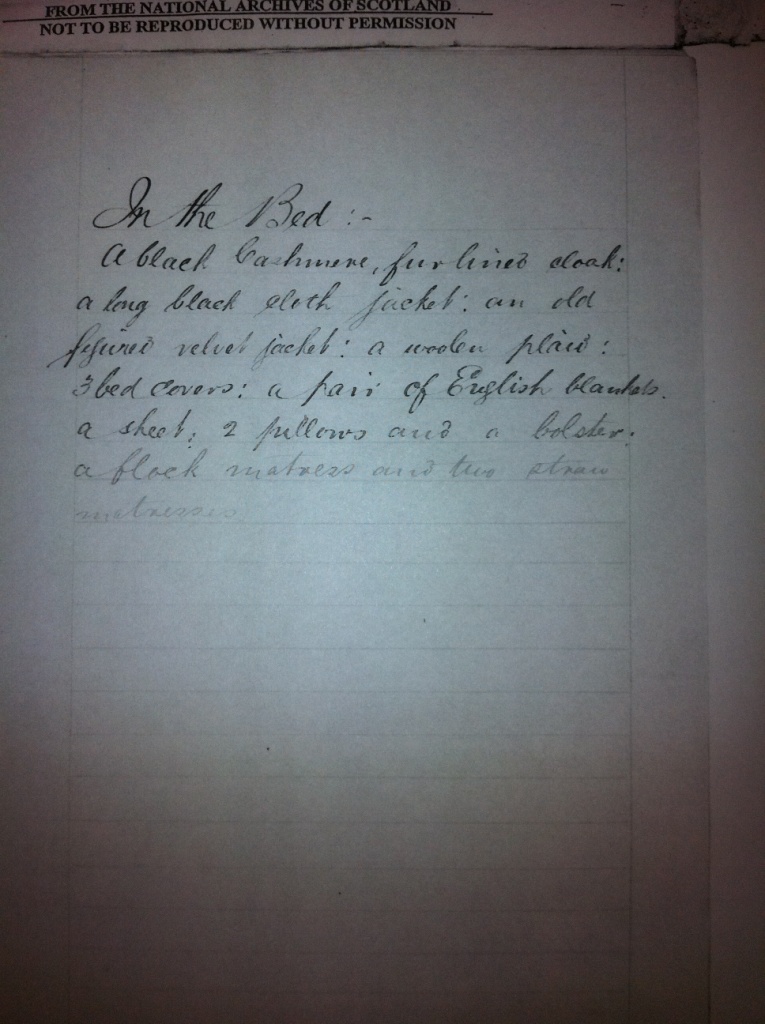 FROM THE NATIONAL ARCHIVES OF SCOTLAND
NOT TO BE REPRODUCED WITHOUT PERMISSION
In the Bed :-
A black Cashmere, fur lined cloak:
a long black cloth jacket: an old
figured velvet jacket: a woolen plaid:
3 bed covers: a pair of English blankets.
a sheet; 2 pillows and a bolster:
a flock matress and two straw
matresses.